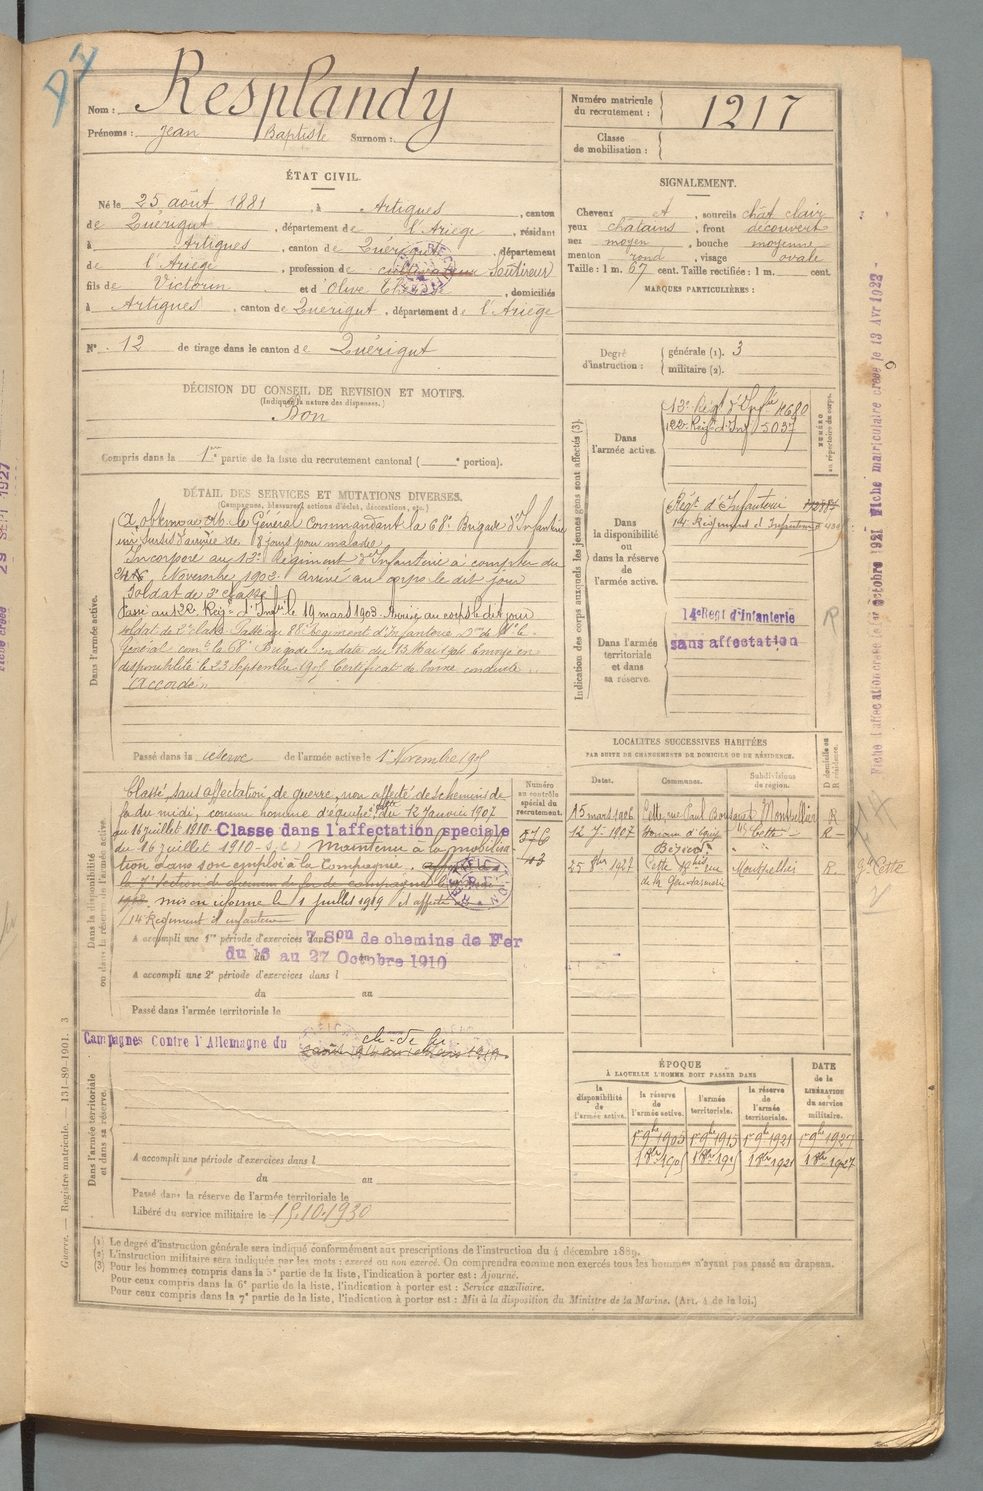 Nom : Resplandy
Prénoms : Jean Baptiste Surnom :
Numéro matricule du recrutement : 1217
Classe de mobilisation :
ÉTAT CIVIL.
Né le 25 août 1881 , à Artigues , canton
de Quérigut , département de l'Ariège , résidant
à Artigues , canton de Quérigut , département
de l'Ariège , profession de cultivateur
fils de Victorin et d' Olive , domiciliés
à Artigues , canton de Quérigut , département de l'Ariège
N° 12 de tirage dans le canton de Quérigut
SIGNALEMENT.
Cheveux et , sourcils chât clair
yeux châtains , front découvert
nez moyen , bouche moyenne
menton rond , visage ovale
Taille : 1 m. 67 cent. Taille rectifiée : 1 m. cent.
MARQUES PARTICULIÈRES :
Degré d'instruction : générale (1). 3
militaire (2).
DÉCISION DU CONSEIL DE REVISION ET MOTIFS.
(Indiquer la nature des dispenses.)
Bon
Compris dans la 1re partie de la liste du recrutement cantonal ( e portion).
DÉTAIL DES SERVICES ET MUTATIONS DIVERSES.
(Campagnes, blessures, actions d'éclat, décorations, etc.)
Dans l'armée active.
A obtenu de le Général Commandant la 68e Brigade d'Infanterie
un sursis d'arrivée de 8 jours pour maladie.
Incorporé au 12e Régiment d'Infanterie à compter du
Novembre 1902. arrivé au corps le dit jour
Soldat de 2e classe
Passé au 122 Regt d'Infie le 19 mars 1903. Arrivé au corps le dit jour
soldat de 2e classe Passé au 88e Régiment d'Infanterie Don de Mr le
Général comt la 68e Brigade en date du 13 Mai Envoyé en
disponibilité le 23 Septembre 1905 Certificat de bonne conduite
"Accordé"
Passé dans la réserve de l'armée active le 1er Novembre 1905
Indication des corps auxquels les jeunes gens sont affectés (3).
Dans l'armée active.
12e Régt d'Infie 4680
122e Régt d'Inf 5037
NUMÉRO au répertoire du corps.
Dans la disponibilité ou dans la réserve de l'armée active.
Régt d'Infanterie
14e Régiment d'Infanterie
Dans l'armée territoriale et dans sa réserve.
14e Regt d'Infanterie
sans affectation
R
LOCALITÉS SUCCESSIVES HABITÉES
PAR SUITE DE CHANGEMENTS DE DOMICILE OU DE RÉSIDENCE.
Dates. Communes. Subdivisions de région. D domicile ou R résidence.
15 mars 1906 Cette, rue Paul Montpellier R
12 Jr 1907 Béziers R
25 1927 Cette rue de la Gendarmerie Montpellier R.
Dans la disponibilité ou dans la réserve de l'armée active.
Numéro au contrôle spécial du recrutement.
Classé sans affectation, de guerre, non affecté des chemins de
fer du midi, comme homme d'équipe du 12 Janvier 1907
du 16 juillet 1910 Classe dans l'affectation speciale
du 16 juillet 1910 Maintenu à la mobilisa
tion dans son emploi à la Compagnie.
la 7e section de chemins de fer de campagne
mis en réserve le 1 juillet 1919
14e Régiment d'infanterie
576
A accompli une 1re période d'exercices dans 7 Son de chemins de Fer
du 13 au 27 Octobre 1910
A accompli une 2e période d'exercices dans l
du au
Passé dans l'armée territoriale le
Campagnes Contre l'Allemagne du
ch. de fer
RECTIFICATION
Dans l'armée territoriale et dans sa réserve.
A accompli une période d'exercices dans l
du au
Passé dans la réserve de l'armée territoriale le
Libéré du service militaire le 15.10.1930
ÉPOQUE
À LAQUELLE L'HOMME DOIT PASSER DANS
la disponibilité de l'armée active.
la réserve de l'armée active.
l'armée territoriale.
la réserve de l'armée territoriale.
DATE de la LIBÉRATION du service militaire.
1er 9bre 1905 1er 9bre 1915 1er 9bre 1921 1er 9bre 1927
(1) Le degré d'instruction générale sera indiqué conformément aux prescriptions de l'instruction du 4 décembre 1889.
(2) L'instruction militaire sera indiquée par les mots : exercé ou non exercé. On comprendra comme non exercés tous les hommes n'ayant pas passé au drapeau.
(3) Pour les hommes compris dans la 5e partie de la liste, l'indication à porter est : Ajourné.
Pour ceux compris dans la 6e partie de la liste, l'indication à porter est : Service auxiliaire.
Pour ceux compris dans la 7e partie de la liste, l'indication à porter est : Mis à la disposition du Ministre de la Marine. (Art. 4 de la loi.)
Guerre. — Registre matricule. 131-89-1901. 3
Fiche d'affectation créée le Octobre 1921 Fiche matriculaire créée le 13 Avr 1922
29 SEPT 1927